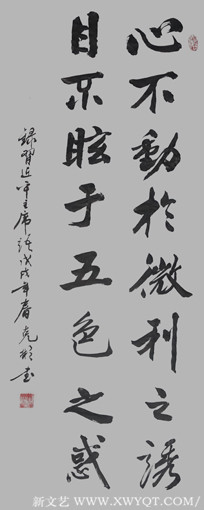 心不動於微利之誘
目不眩于五色之惑
録習近平主席語戊戌年春克彬书
新文艺 www.XWYQT.com